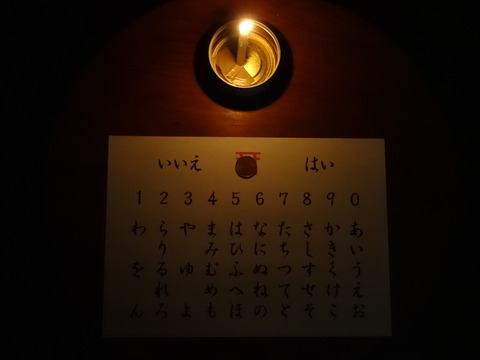 いいえ はい
1 2 3 4 5 6 7 8 9 0
あいうえお
かきくけこ
さしすせそ
たちつてと
なにぬねの
はひふへほ
まみむめも
や ゆ よ
らりるれろ
わ を ん